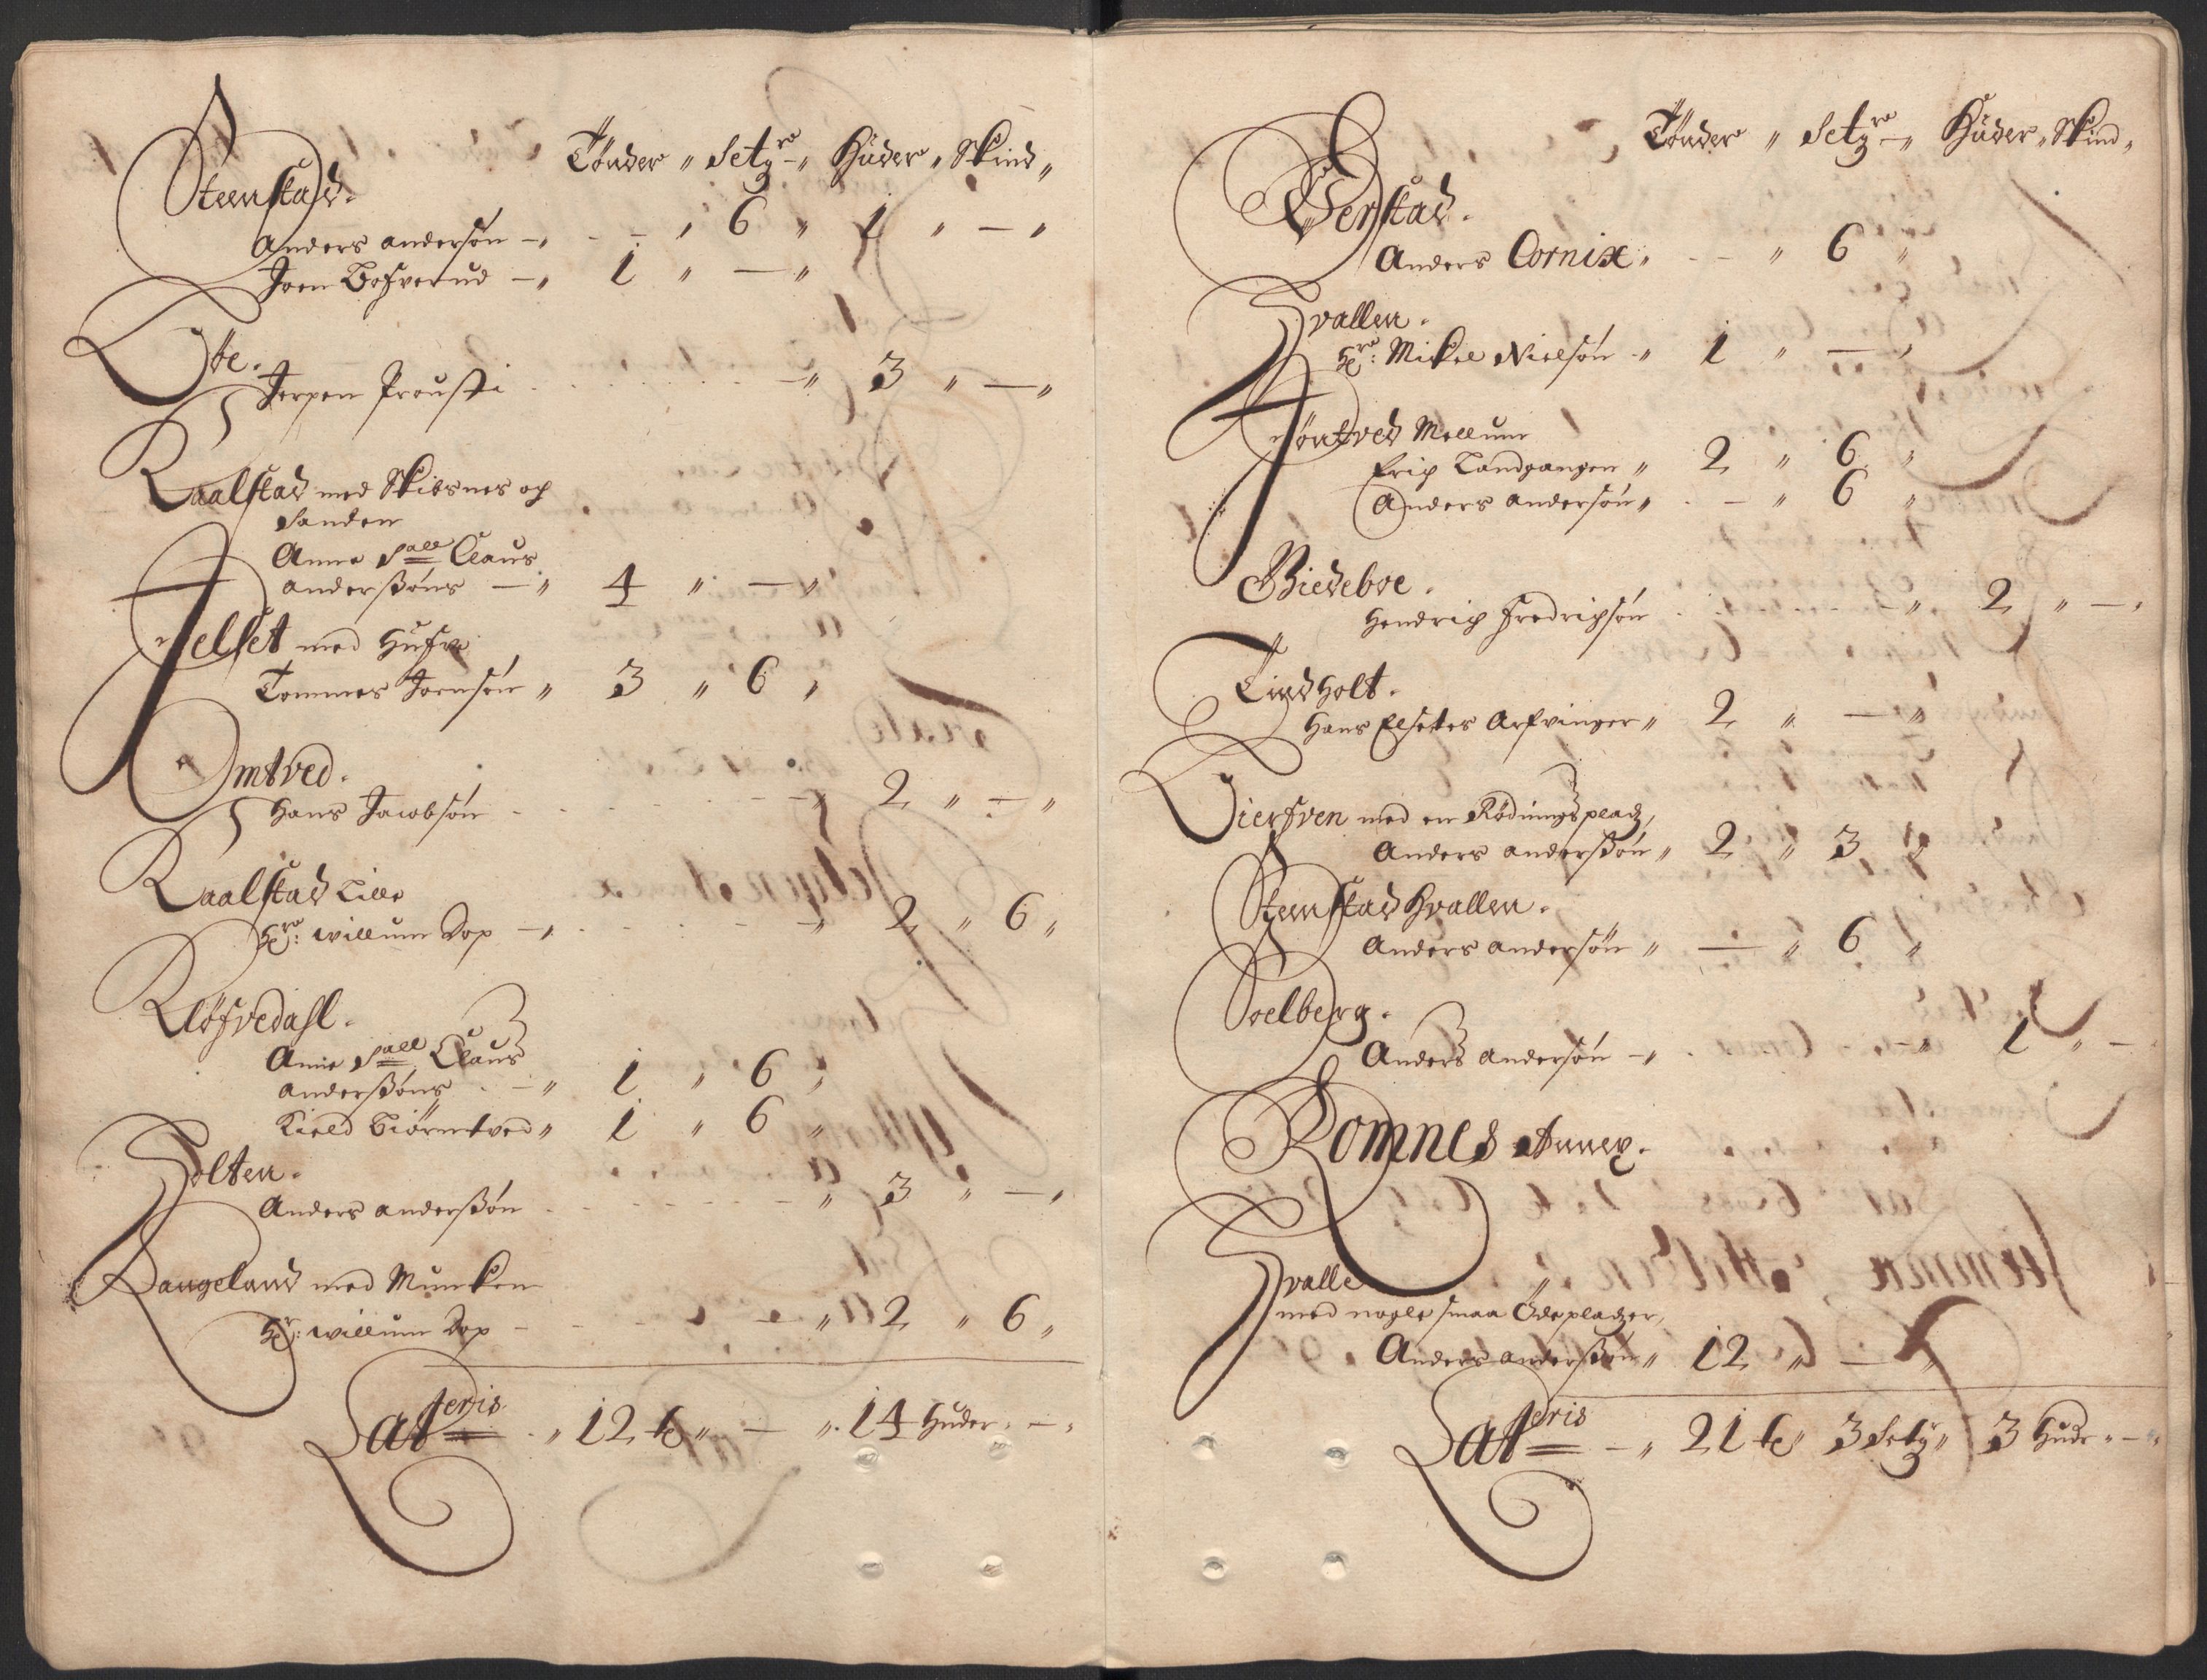 Tönder " Setzre " Hüder " Skind "
Steenstad.
Anders andersön – " – – " 6 " 1 " – "
Joen Bosverud – " 1 " – "
Ode.
Jerpen Prousti – " 3 " – "
Raalstad med Skibsnes och
Sanden
Anne Sall Claus
anderssöns – " 4 " – "
Jelset med Husve
Tommes Joensön " 3 " 6 "
Omtved.
Hans Jacobsön – " 2 " – "
Raalstad Lille
Hr: willum Dop – " – " 2 " 6 "
Klöfvedahl.
Anne Sall Claus
anderssöns – " 1 " 6 "
Kield Biörntved " 1 " 6 "
Holten.
Anders anderssön " 3 " – "
Langeland med Muncken
Hr: willum Dop – – " 2 " 6 "
Lateris " 12 t " – " 14 Huder " – "
Tönder " Setzre – " Hüder " Skind "
Verstad.
Anders Cornix " – – " 6 "
Hvallen.
Hr: Mickel Nielsön – " 1 " – "
Töntved Mellum
Erich Landgangen " 2 " 6 "
Anders andersön " – " 6 "
Biedeboe.
Hendrich Fredrichsön – " 2 " – "
Lindholt.
Hans Elsettes Arfvinger " 2 " – "
Dierfven med en Rödningsplads,
Anders anderssön " 2 " 3 "
Steenstad Hvallen.
Anders andersön " – " 6 "
Soelberg.
Anders andersön – " – " 1 " –
Romnes Annex.
Hvalle
med nogle smaa Ödepladzer,
Anders anderssön " 12 " – "
Lateris – " 21 t " 3 Setz " 3 Hudr " – "